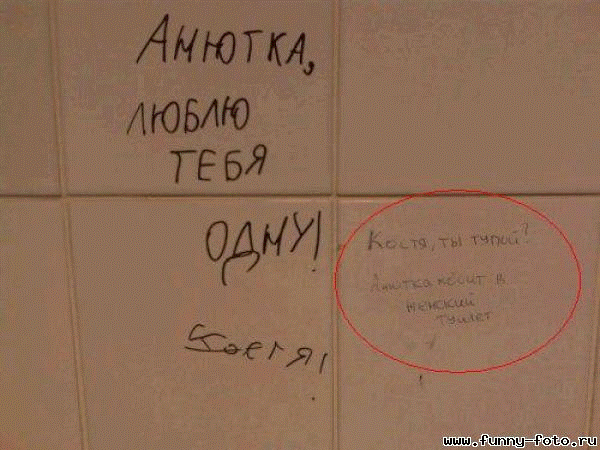 Анютка,
люблю
тебя
одну!
Костя,
Костя, ты тупой?
Анютка ходит в
женский
туалет
www.funny-foto.ru